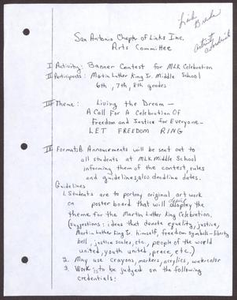 San Antonio Chapter of Links Inc.
Arts Committee
I Activity: Banner Contest for MLK Celebration
II Participants: Martin Luther King Jr. Middle School
6th, 7th, 8th grades
III Theme: Living the Dream—
A Call For A Celebration Of
Freedom and Justice for Everyone—
LET FREEDOM RING
IV Format: Announcements will be sent out to
all students at MLK Middle School
informing them of the contest, rules
and guidelines, also deadline dates.
Guidelines
1 Students are to portray original art work
on poster board that will display the
theme for the Martin Luther King Celebration.
(suggestions: ideas that denote equality, justice,
Martin Luther King himself, freedom symbols - liberty
bell, justice scales, etc., people of the world
united, youth united, peace, etc.)
2. May use crayons, markers, acrylics, watercolor
3 Work is to be judged on the following
credentials: